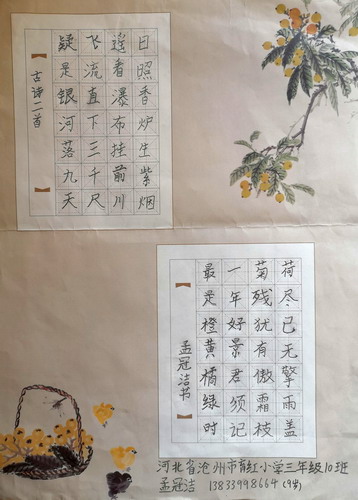 日照香炉生紫烟
遥看瀑布挂前川
飞流直下三千尺
疑是银河落九天
古诗二首
荷尽已无擎雨盖
菊残犹有傲霜枝
一年好景君须记
最是橙黄橘绿时
孟冠洁书
河北省沧州市育红小学三年级10班
孟冠洁 13833998664 (9岁)